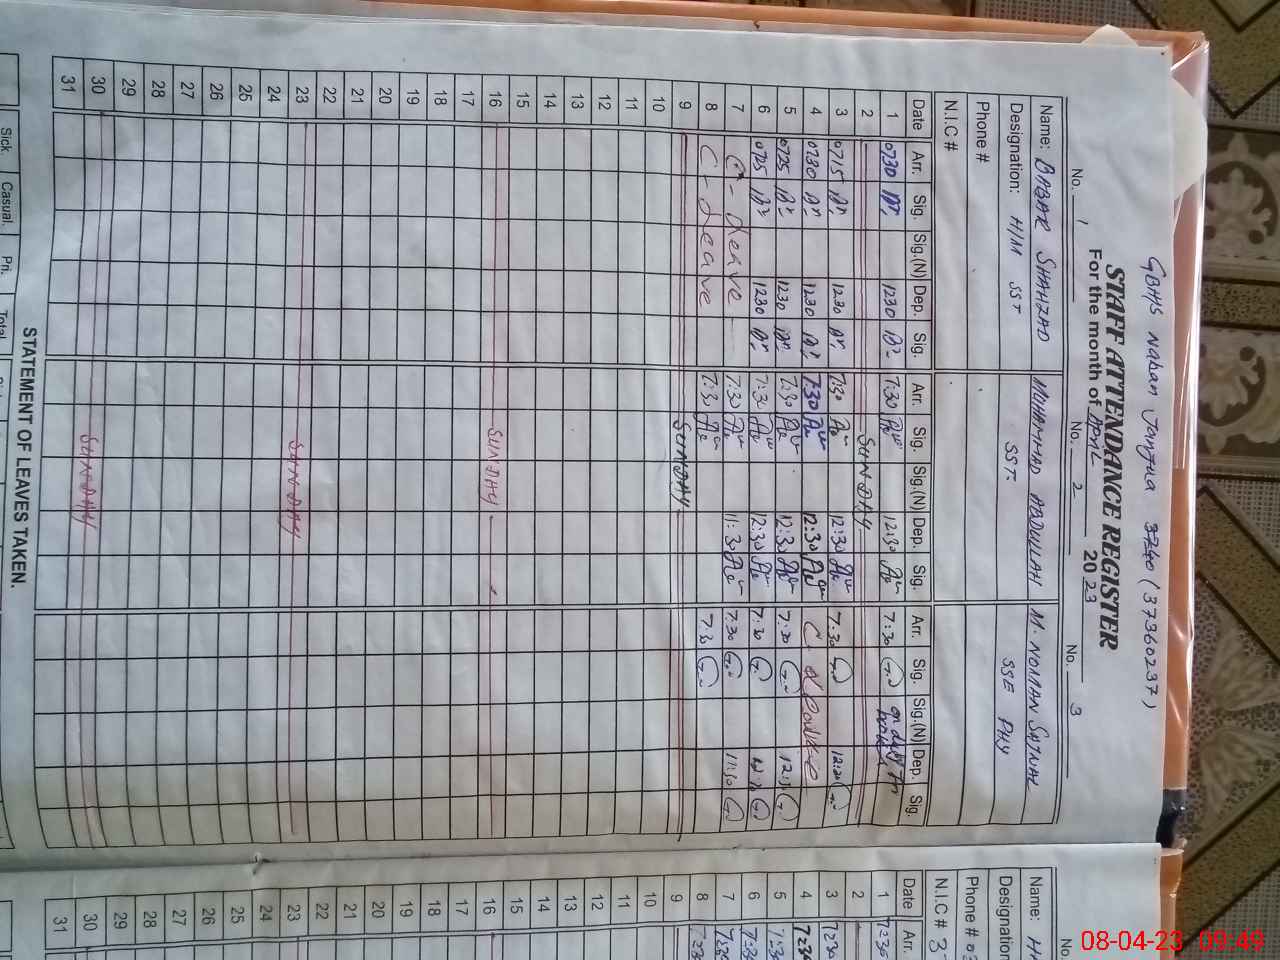 GBHS Naban Janjua 3740 (37360237)
STAFF ATTENDANCE REGISTER
For the month of APRIL 2023
No. 1 No. 2 No. 3
Name: BABAR SHAHZAD MOHAMMAD ABDULLAH M. NOMAN SAJJAL
Designation: H/M SST SST. SSE PHY
Phone #
N.I.C #
Date Arr. Sig. Sig.(N) Dep. Sig. Arr. Sig. Sig.(N) Dep. Sig. Arr. Sig. Sig.(N) Dep. Sig.
1 0730 1230 7:30 12:30 7:30 on duty
2 SUNDAY
3 0715 1230 7:30 12:30 7:30 12:30
4 0730 1230 7:30 12:30 C.
5 0725 1230 7:30 12:30 7:30 12:30
6 0725 1230 7:30 12:30 7:30
7 C - Leave 7:30 11:30 7:30 11:30
8 C - Leave 7:30 7:30
9 SUNDAY
10
11
12
13
14
15
16 SUNDAY
17
18
19
20
21
22
23 SUNDAY
24
25
26
27
28
29
30 SUNDAY
31
STATEMENT OF LEAVES TAKEN.
Sick. Casual. Pri. Total
No.
Name:
Designation
Phone #
N.I.C # 3
Date Arr.
1 7:30
2
3 7:30
4 7:30
5 7:30
6 7:30
7 7:30
8 7:30
9
10
11
12
13
14
15
16
17
18
19
20
21
22
23
24
25
26
27
28
29
30
31
08-04-23 09:49